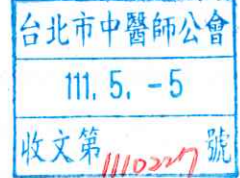 台北市中醫師公會
111. 5. -5
收文第1110227號